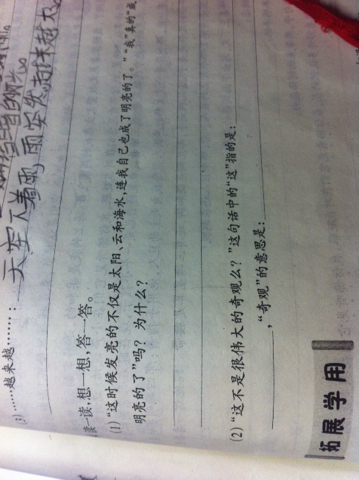 3）……越来越……：
天空下着雨，雨突然越来越大。
读一读，想一想，答一答。
(1)“这时候发亮的不仅是太阳、云和海水，连我自己也成了明亮的了。”“我”真的“成
明亮的了”吗？为什么？
(2)“这不是很伟大的奇观么？”这句话中的“这”指的是：
，“奇观”的意思是：
拓展学用